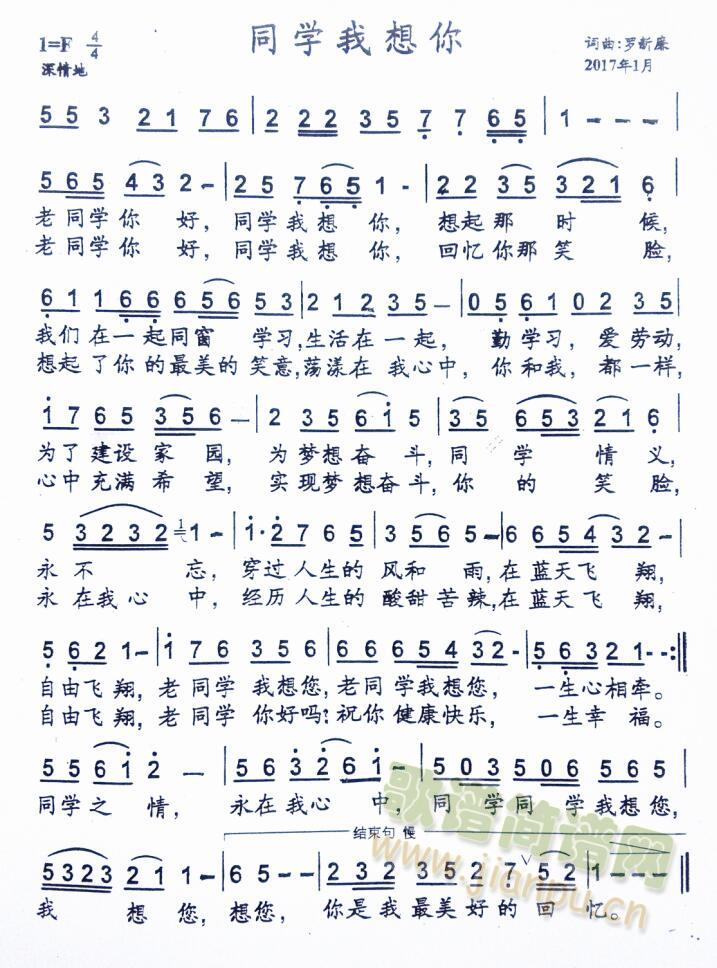 同学我想你
1=F 4/4
深情地
词曲:罗新廉
2017年1月
5 5 3 2 1 7 6 | 2 2 2 3 5 7 7 6 5 | 1 - - -
5 6 5 4 3 2 - | 2 5 7 6 5 1 - | 2 2 3 5 3 2 1 6
老同学你 好, 同学我想 你, 想起那 时 候,
老同学你 好, 同学我想 你, 回忆你那笑 脸,
6 1 1 6 6 6 5 6 5 3 | 2 1 2 3 5 - | 0 5 6 1 0 2 3 5
我们在一起同窗 学习,生活在一起, 勤学习, 爱劳动,
想起了你的最美的笑意,荡漾在我心中, 你和我, 都一样,
1 7 6 5 3 5 6 - | 2 3 5 6 1 5 | 3 5 6 5 3 2 1 6
为了建设家园, 为梦想奋斗,同 学 情义,
心中充满希望, 实现梦想奋斗,你 的 笑脸,
5 3 2 3 2 1 1 - | 1·2 7 6 5 | 3 5 6 5 - | 6 6 5 4 3 2 -
永不 忘, 穿过人生的风和 雨,在蓝天飞 翔,
永在我心 中, 经历人生的酸甜苦辣,在蓝天飞翔,
5 6 2 1 - | 1 7 6 3 5 6 | 6 6 6 6 5 4 3 2 - | 5 6 3 2 1 - - :||
自由飞翔, 老同学 我想您,老同学我想您, 一生心相牵。
自由飞翔, 老同学 你好吗?祝你健康快乐, 一生幸福。
5 5 6 1 2 - | 5 6 3 2 6 1 - | 5 0 3 5 0 6 5 6 5
同学之 情, 永在我心 中, 同 学同 学我想您,
结束句 慢
5 3 2 3 2 1 1 - | 6 5 - - | 2 3 2 3 5 2 7 ∨ 5 2 | 1 - - -
我 想您, 想您, 你是我最美好的回忆。
歌谱简谱网
www.jianpu.cn